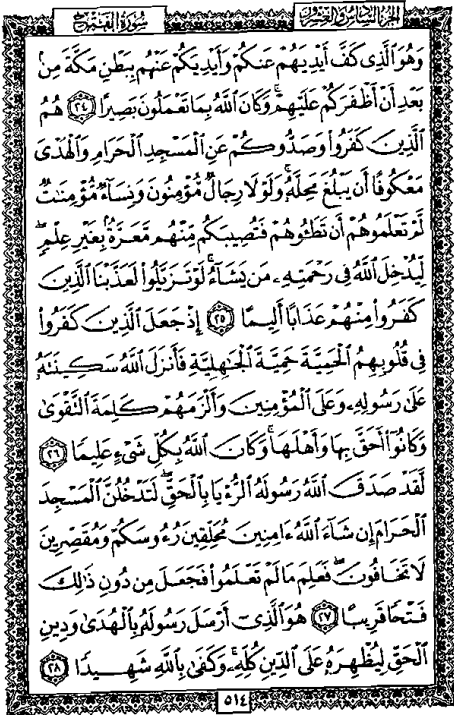 الجزء السادس والعشرون
سورة الفتح
وَهُوَ الَّذِي كَفَّ أَيْدِيَهُمْ عَنكُمْ وَأَيْدِيَكُمْ عَنْهُم بِبَطْنِ مَكَّةَ مِنۢ
بَعْدِ أَنْ أَظْفَرَكُمْ عَلَيْهِمْ ۚ وَكَانَ اللَّهُ بِمَا تَعْمَلُونَ بَصِيرًا ۝٢٤ هُمُ
الَّذِينَ كَفَرُوا۟ وَصَدُّوكُمْ عَنِ الْمَسْجِدِ الْحَرَامِ وَالْهَدْيَ
مَعْكُوفًا أَن يَبْلُغَ مَحِلَّهُۥ ۚ وَلَوْلَا رِجَالٌ مُّؤْمِنُونَ وَنِسَآءٌ مُّؤْمِنَٰتٌ
لَّمْ تَعْلَمُوهُمْ أَن تَطَـُٔوهُمْ فَتُصِيبَكُم مِّنْهُم مَّعَرَّةٌۢ بِغَيْرِ عِلْمٍ ۖ
لِّيُدْخِلَ اللَّهُ فِي رَحْمَتِهِۦ مَن يَشَآءُ ۚ لَوْ تَزَيَّلُوا۟ لَعَذَّبْنَا الَّذِينَ
كَفَرُوا۟ مِنْهُمْ عَذَابًا أَلِيمًا ۝٢٥ إِذْ جَعَلَ الَّذِينَ كَفَرُوا۟
فِي قُلُوبِهِمُ الْحَمِيَّةَ حَمِيَّةَ الْجَٰهِلِيَّةِ فَأَنزَلَ اللَّهُ سَكِينَتَهُۥ
عَلَىٰ رَسُولِهِۦ وَعَلَى الْمُؤْمِنِينَ وَأَلْزَمَهُمْ كَلِمَةَ التَّقْوَىٰ
وَكَانُوٓا۟ أَحَقَّ بِهَا وَأَهْلَهَا ۚ وَكَانَ اللَّهُ بِكُلِّ شَيْءٍ عَلِيمًا ۝٢٦
لَّقَدْ صَدَقَ اللَّهُ رَسُولَهُ الرُّءْيَا بِالْحَقِّ ۖ لَتَدْخُلُنَّ الْمَسْجِدَ
الْحَرَامَ إِن شَآءَ اللَّهُ ءَامِنِينَ مُحَلِّقِينَ رُءُوسَكُمْ وَمُقَصِّرِينَ
لَا تَخَافُونَ ۖ فَعَلِمَ مَا لَمْ تَعْلَمُوا۟ فَجَعَلَ مِن دُونِ ذَٰلِكَ
فَتْحًا قَرِيبًا ۝٢٧ هُوَ الَّذِيٓ أَرْسَلَ رَسُولَهُۥ بِالْهُدَىٰ وَدِينِ
الْحَقِّ لِيُظْهِرَهُۥ عَلَى الدِّينِ كُلِّهِۦ ۚ وَكَفَىٰ بِاللَّهِ شَهِيدًا ۝٢٨
٥١٤